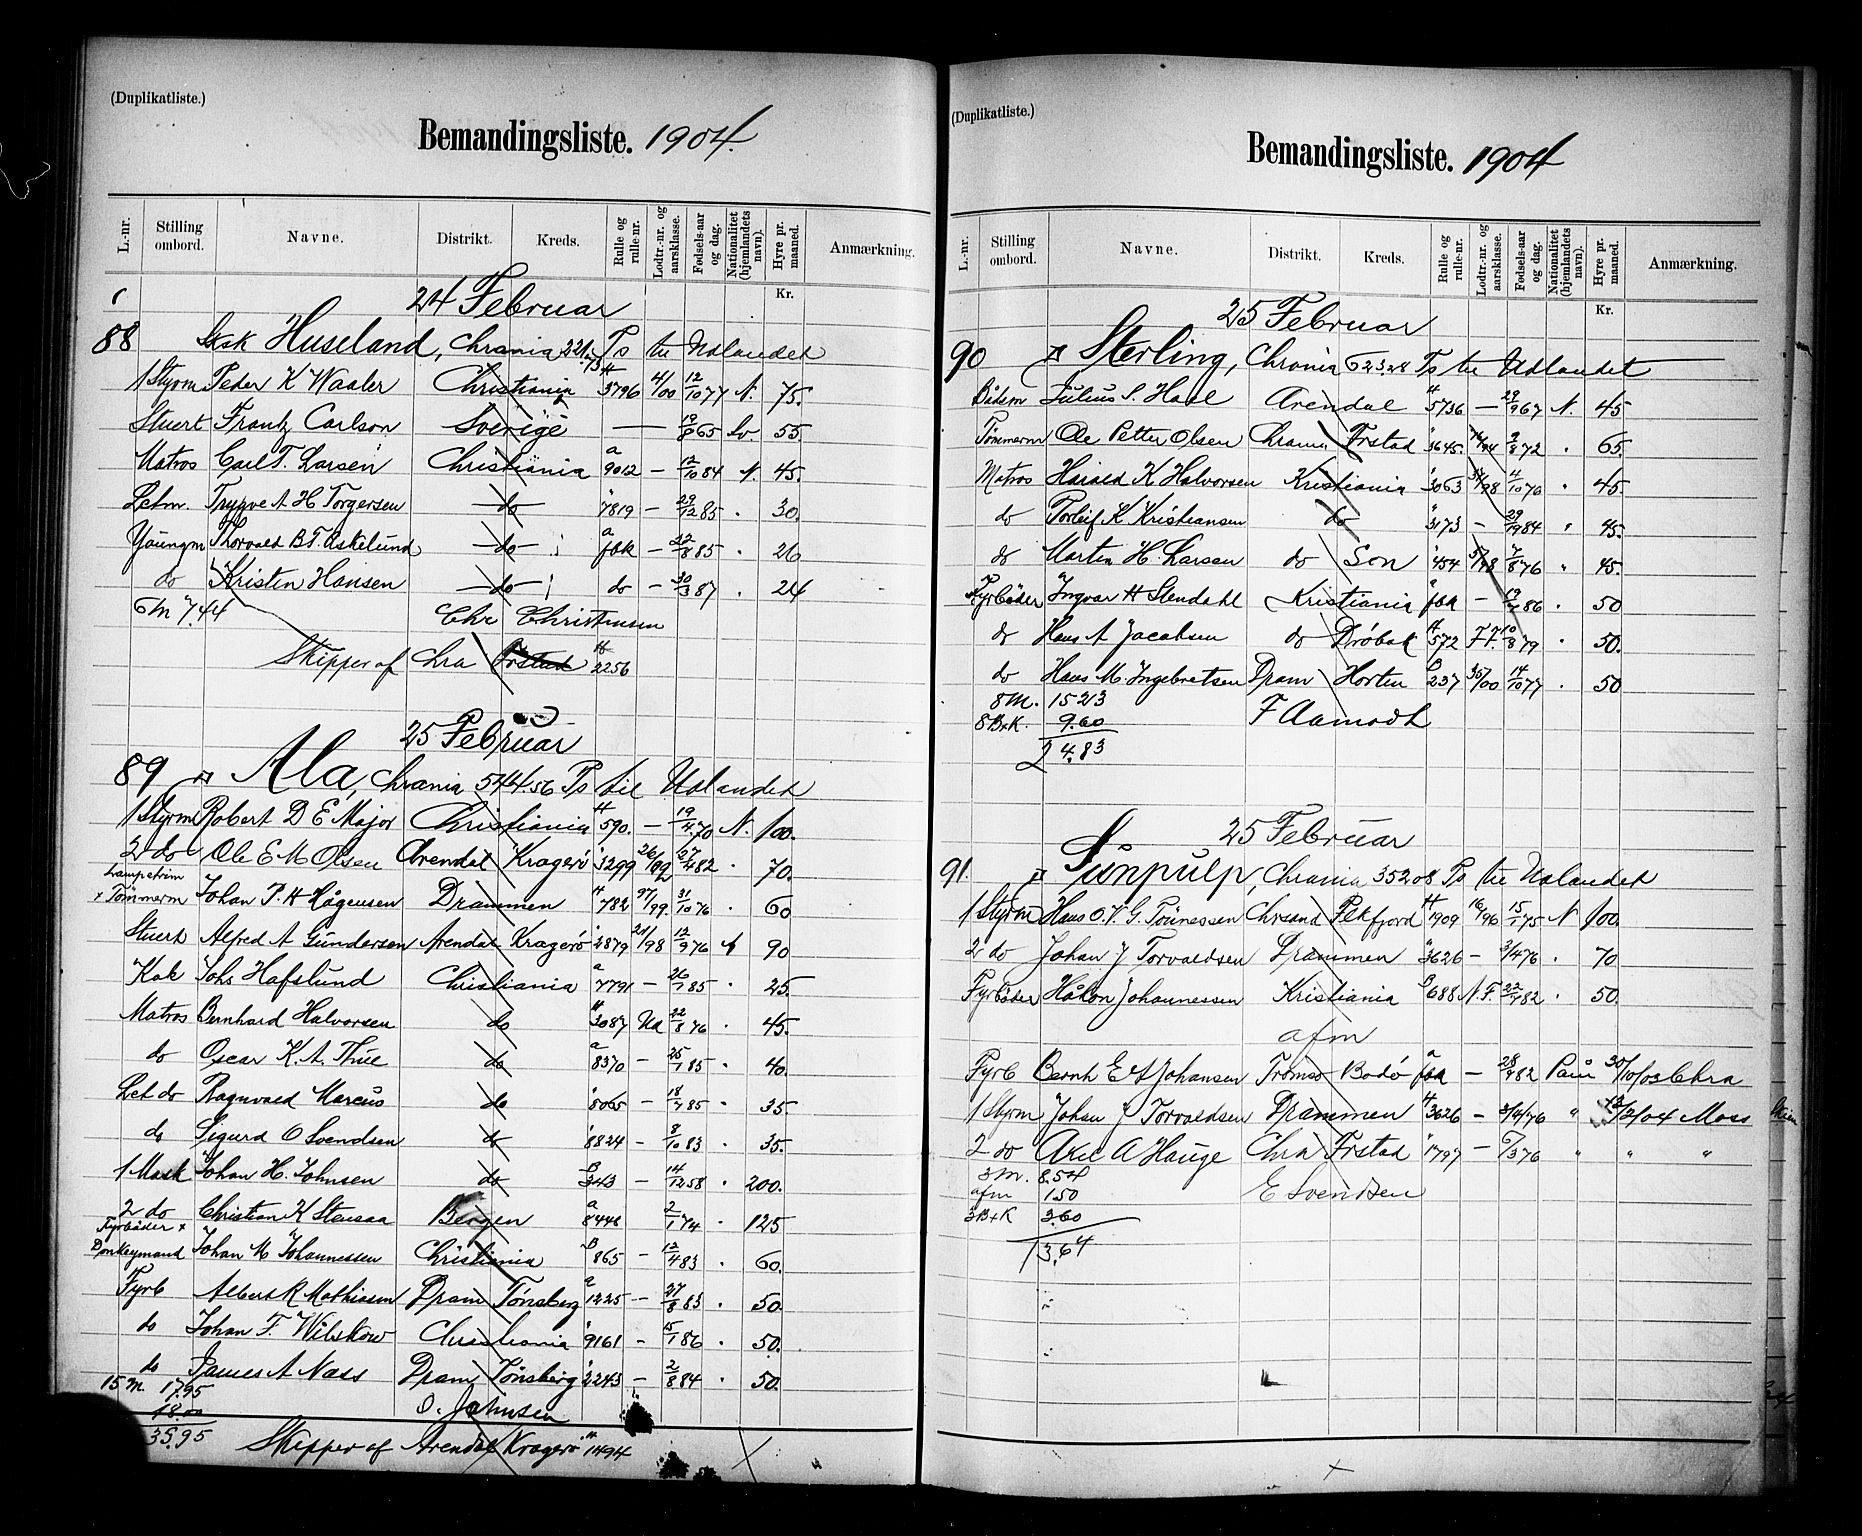 (Duplikatliste.)
Bemandingsliste. 1904.
L.-nr. Stilling ombord. Navne. Distrikt. Kreds. Rulle og rulle-nr. Lodtr.-nr. og aarsklasse. Fødsels-aar og dag. Nationalitet (hjemlandets navn). Hyre pr. maaned. Anmærkning.
Kr.
24 Februar
88 Huseland, Chrania 221.73 Ts til Udlandet
1 Styrm Peder K Waaler Christiania 3796 4/00 12/10 77 N. 75.
Stuert Frantz Carlson Sverige — 19/8 65 Sv 55
Matros Carl T. Larsen Christiania a 9012 — 12/10 84 N. 45.
Letm. Trygve A H Torgersen do " 7819 — 29/12 85 . 30.
Youngm Thorvald B.T. Askelund do a fok — 22/8 85 . 26
do Kristen Hansen do do — 30/3 87 . 24
6 M 7.44 Chr Christensen
Skipper af Chra Frstad 2256
25 Februar
89 Ala, Chrania 544.56 Ts til Udlandet
1 Styrm Robert D E Major Christiania 590. — 19/4 70 N. 100.
2 do Ole E M Olsen Arendal Kragerø 3299 26/02 27/4 82 . 70.
Lampetrim
+ Tømmerm Johan P. H Hågensen Drammen 782 97/99. 31/10 76 . 60
Stuert Alfred A Gundersen Arendal Kragerø 2879 21/98 12/9 76 90
Kok Johs Hafslund Christiania a 7791 — 26/1 85 . 25.
Matros Bernhard Halvorsen do 3087 Ud 22/8 76 . 45.
do Oscar K. A. Thue do a 8370 — 25/1 85 . 40.
Let do Ragnvald Marcus do 8065 — 18/7 85 . 35.
do Sigurd O Svendsen do 8824 — 8/10 83 . 35.
1 Mask Johan H. Johnsen do 343 — 14/12 58 . 200.
2 do Christian K Stensaa Bergen a 8446 2/1 74 . 125
Fyrbøder +
Donkeymand Johan M Johannessen Christiania 865 — 12/4 83 . 60.
Fyrb Albert R Mathiasen Dram Tønsberg a 1225 — 27/8 83 . 50.
do Johan F. Wilskow Christiania 9161 — 15/1 86 . 50.
do James A Nass Dram Tønsberg 2243 — 2/8 84 . 50.
15 M. 17.95 O. Johnsen
18.00
35.95 Skipper af Arendal Kragerø 1494
(Duplikatliste.)
Bemandingsliste. 1904
L.-nr. Stilling ombord. Navne. Distrikt. Kreds. Rulle og rulle-nr. Lodtr.-nr. og aarsklasse. Fødsels-aar og dag. Nationalitet (hjemlandets navn). Hyre pr. maaned. Anmærkning.
Kr.
25 Februar
90 Sterling, Chrania 623.28 Ts til Udlandet
Bådsm Julius S. Haal Arendal 5736 — 29/9 67 N. 45
Tømmerm Ole Petter Olsen Chrania Frstad 3645. 76/94 9/8 72 . 65.
Matros Harald K Halvorsen Kristiania 3063 98 4/10 76 " 45.
do Torleif K Kristiansen do 3173 — 29/12 84 " 45.
do Martin H. Larsen do Son 454 57/98 7/8 76 " 45.
Fyrbøder Ingvar H Stendahl Kristiania fok — 19/7 86 . 50
do Hans A Jacobsen do Drøbak 572 F.F. 10/8 79 . 50.
do Hans M. Ingebretsen Dram Horten 237 36/00 14/10 77 . 50
8 M. 15.23 F Aamodt
8 B+K. 9.60
24.83
25 Februar
91. Sunpulp, Chrania 352.08 Ts til Udlandet
1 Styrm Hans O. V. G. Tönnessen Chrsand Flekfjord 1909 16/96 15/1 75 N 100.
2 do Johan J Torvaldsen Drammen 3626 — 3/4 76 . 70
Fyrbøder Håkon Johannessen Kristiania 688 N.F. 22/1 82 . 50.
afm
Fyrb Bernh E A Johansen Tromsø Bodø a fok — 28/9 82 Påm 30/10/03 Chra
1 Styrm Johan J Torvaldsen Drammen 3626 — 3/4/76 " 12/2/04 Moss
2 do Axel A Hauge Chra Frstad 1797 — 6/3 76 " " "
3 M. 8.54 E Svendsen
afm 1.50
3 B+K 3.60
13.64